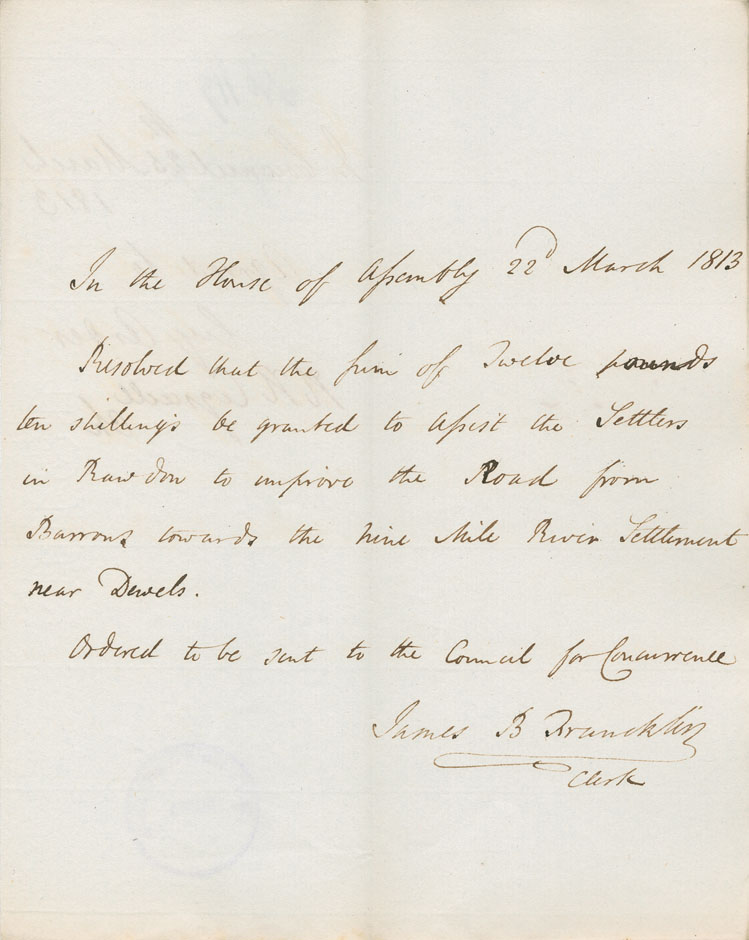 In the House of Assembly 22d March 1813
Resolved that the sum of Twelve pounds
ten shillings be granted to assist the Settlers
in Rawdon to improve the Road from
Barrons towards the Nine Mile River Settlement
near Dewels.
Ordered to be sent to the Council for Concurrence
James B Francklin
Clerk